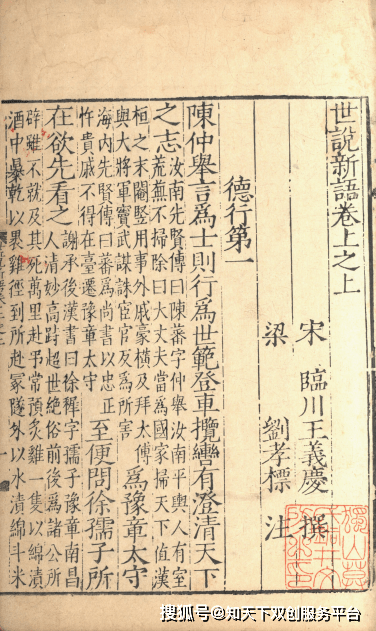 世說新語卷上之上
宋 臨川王義慶 撰
梁 劉孝標 注
德行第一
陳仲舉言爲士則行爲世範登車攬轡有澄清天下
之志
汝南先賢傳曰陳蕃字仲舉汝南平輿人有室
荒蕪不掃除曰大丈夫當爲國家掃天下值漢
桓之末閹豎用事外戚豪橫及拜太傅
與大將軍竇武謀誅宦官反爲所害
爲豫章太守
海內先賢傳曰蕃爲尚書以忠正
忤貴戚不得在臺遷豫章太守
至便問徐孺子所
在欲先看之
謝承後漢書曰徐穉字孺子豫章南昌
人清妙高跱超世絕俗前後爲諸公所
辟雖不就及其死萬里赴弔常預炙雞一隻以綿漬
酒中暴乾以裹雞徑到所赴冢隧外以水漬綿斗米
搜狐号@知天下双创服务平台